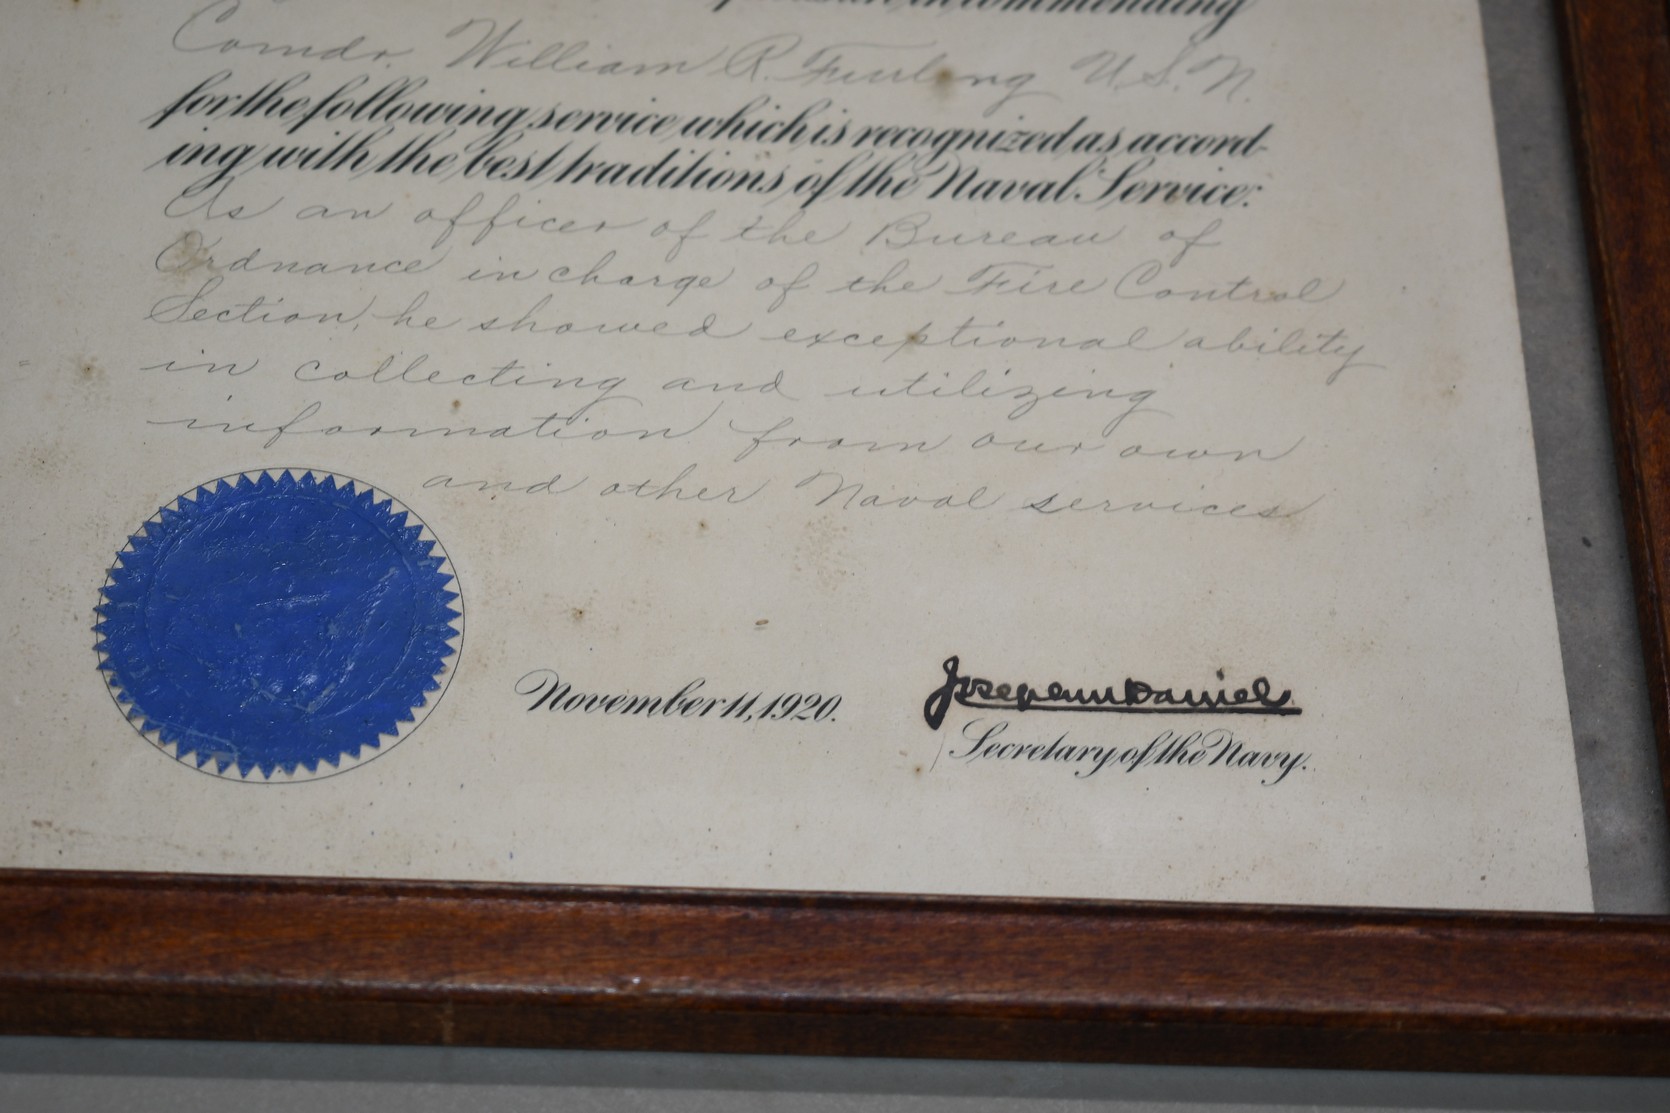 in commending
Comdr. William R. Furlong U.S.N.
for the following service which is recognized as accord-
ing with the best traditions of the Naval Service:
As an officer of the Bureau of
Ordnance in charge of the Fire Control
Section, he showed exceptional ability
in collecting and utilizing
information from our own
and other Naval services
November 11, 1920.
Josephus Daniels
Secretary of the Navy.